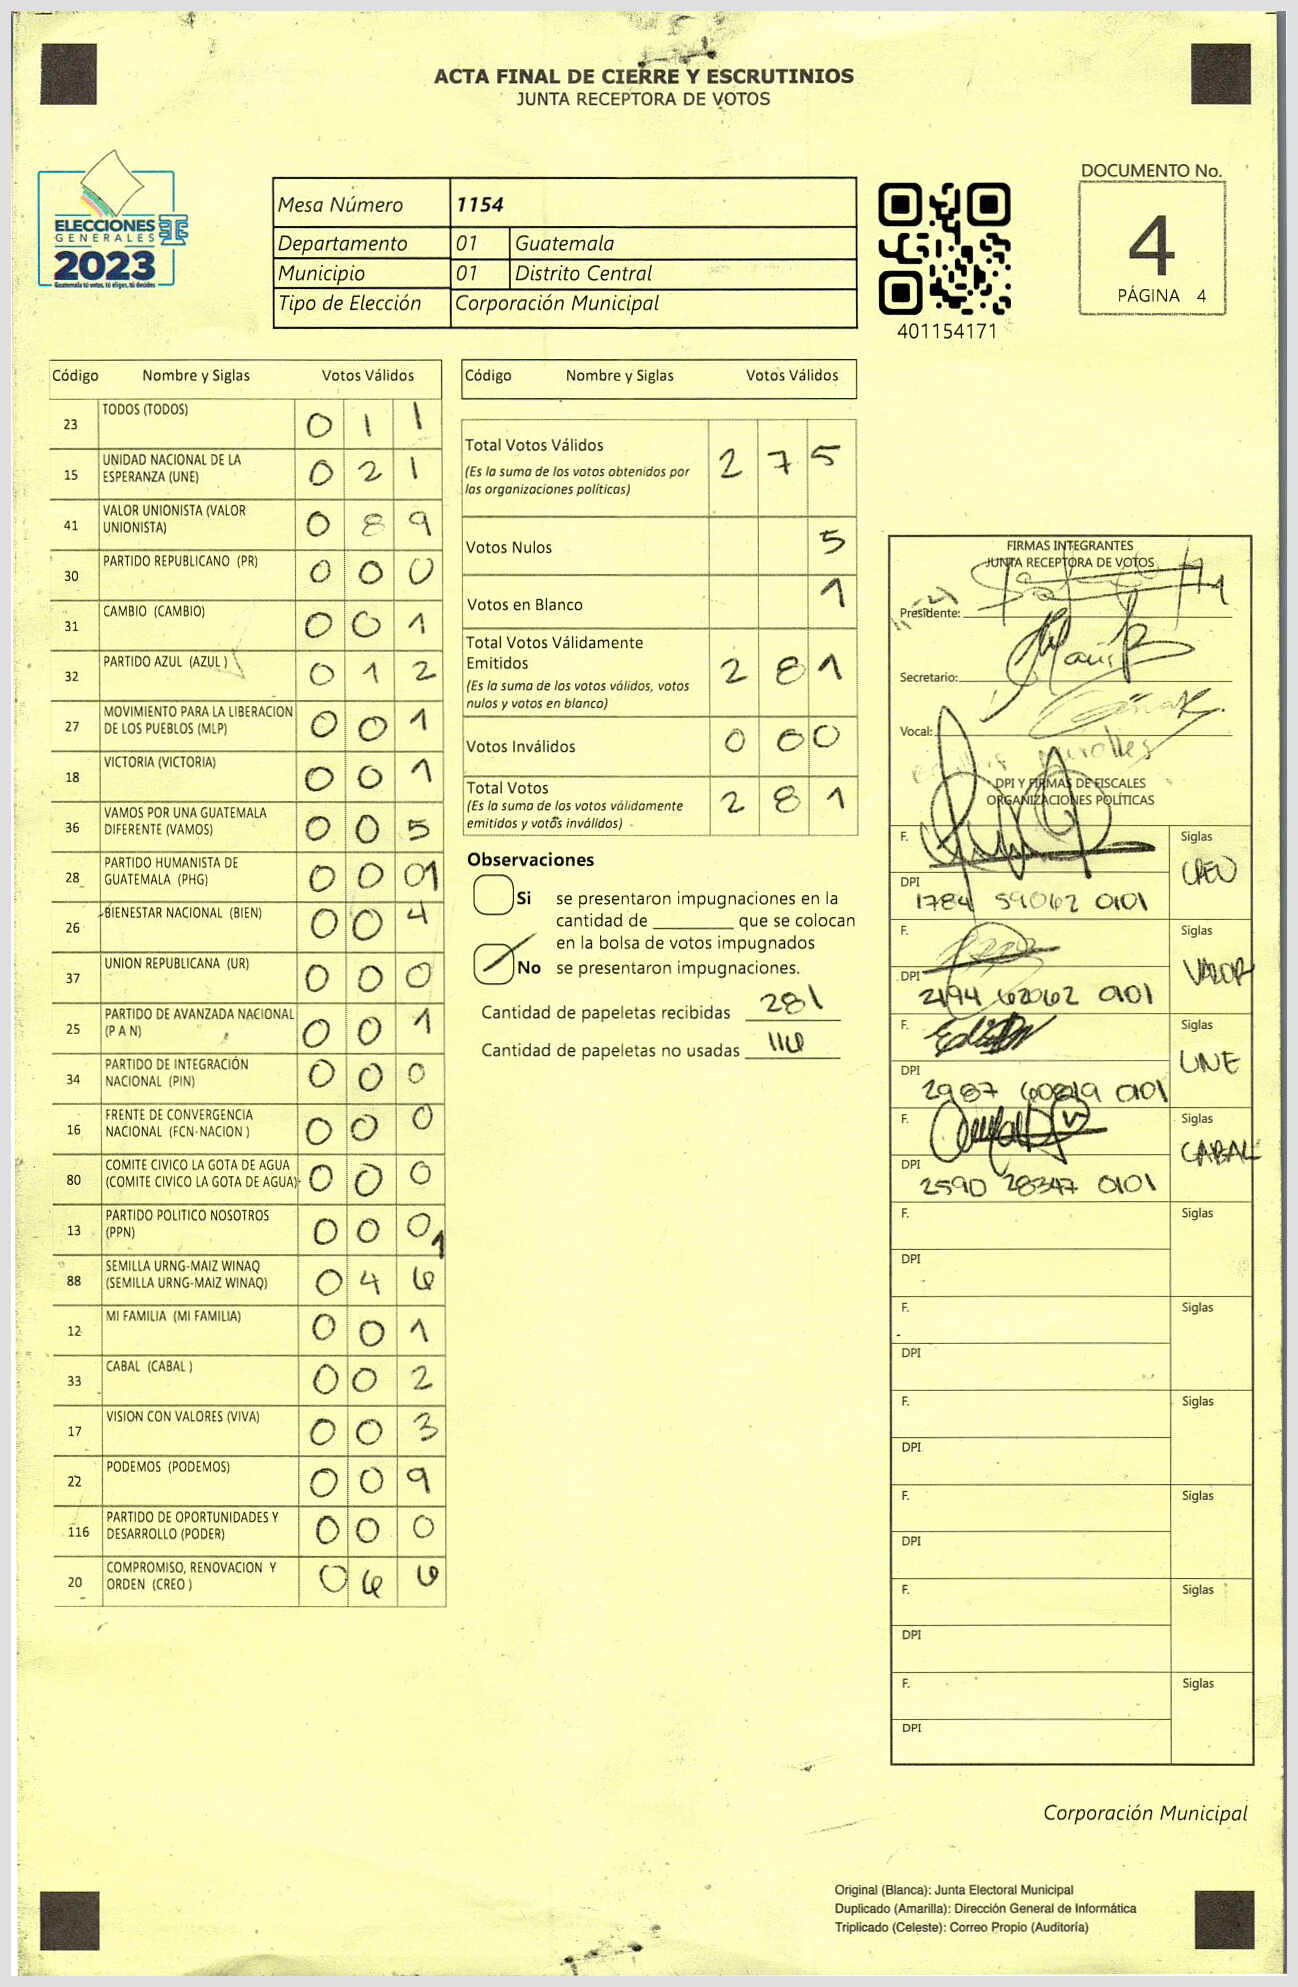 ACTA FINAL DE CIERRE Y ESCRUTINIOS
JUNTA RECEPTORA DE VOTOS
ELECCIONES
GENERALES
2023
Guatemala tú votas, tú eliges, tú decides
Mesa Número 1154
Departamento 01 Guatemala
Municipio 01 Distrito Central
Tipo de Elección Corporación Municipal
401154171
DOCUMENTO No.
4
PÁGINA 4
Código Nombre y Siglas Votos Válidos
23 TODOS (TODOS) 0 1 1
15 UNIDAD NACIONAL DE LA
ESPERANZA (UNE) 0 2 1
41 VALOR UNIONISTA (VALOR
UNIONISTA) 0 8 9
30 PARTIDO REPUBLICANO (PR) 0 0 0
31 CAMBIO (CAMBIO) 0 0 1
32 PARTIDO AZUL (AZUL ) 0 1 2
27 MOVIMIENTO PARA LA LIBERACION
DE LOS PUEBLOS (MLP) 0 0 1
18 VICTORIA (VICTORIA) 0 0 1
36 VAMOS POR UNA GUATEMALA
DIFERENTE (VAMOS) 0 0 5
28 PARTIDO HUMANISTA DE
GUATEMALA (PHG) 0 0 01
26 BIENESTAR NACIONAL (BIEN) 0 0 4
37 UNION REPUBLICANA (UR) 0 0 0
25 PARTIDO DE AVANZADA NACIONAL
(P A N) 0 0 1
34 PARTIDO DE INTEGRACIÓN
NACIONAL (PIN) 0 0 0
16 FRENTE DE CONVERGENCIA
NACIONAL (FCN-NACION ) 0 0 0
80 COMITE CIVICO LA GOTA DE AGUA
(COMITE CIVICO LA GOTA DE AGUA) 0 0 0
13 PARTIDO POLITICO NOSOTROS
(PPN) 0 0 01
88 SEMILLA URNG-MAIZ WINAQ
(SEMILLA URNG-MAIZ WINAQ) 0 4 6
12 MI FAMILIA (MI FAMILIA) 0 0 1
33 CABAL (CABAL ) 0 0 2
17 VISION CON VALORES (VIVA) 0 0 3
22 PODEMOS (PODEMOS) 0 0 9
116 PARTIDO DE OPORTUNIDADES Y
DESARROLLO (PODER) 0 0 0
20 COMPROMISO, RENOVACION Y
ORDEN (CREO ) 0 6 6
Código Nombre y Siglas Votos Válidos
Total Votos Válidos 2 7 5
(Es la suma de los votos obtenidos por
las organizaciones políticas)
Votos Nulos 5
Votos en Blanco 1
Total Votos Válidamente
Emitidos 2 8 1
(Es la suma de los votos válidos, votos
nulos y votos en blanco)
Votos Inválidos 0 0 0
Total Votos 2 8 1
(Es la suma de los votos válidamente
emitidos y votos inválidos)
Observaciones
Si se presentaron impugnaciones en la
cantidad de ________ que se colocan
en la bolsa de votos impugnados
No se presentaron impugnaciones.
Cantidad de papeletas recibidas 281
Cantidad de papeletas no usadas 116
FIRMAS INTEGRANTES
JUNTA RECEPTORA DE VOTOS
Presidente:
Secretario:
Vocal:
DPI Y FIRMAS DE FISCALES
ORGANIZACIONES POLÍTICAS
F. Siglas
CREO
DPI
1784 59062 0101
F. Siglas
VALOR
DPI
2194 62062 0101
F. Siglas
UNE
DPI
2987 60849 0101
F. Siglas
CABAL
DPI
2590 28347 0101
F. Siglas
DPI
F. Siglas
DPI
F. Siglas
DPI
F. Siglas
DPI
F. Siglas
DPI
F. Siglas
DPI
Corporación Municipal
Original (Blanca): Junta Electoral Municipal
Duplicado (Amarilla): Dirección General de Informática
Triplicado (Celeste): Correo Propio (Auditoría)